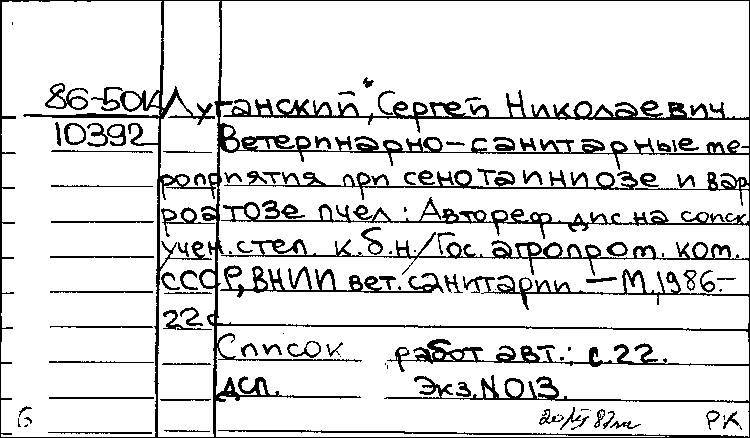 86-501А Луганский, Сергей Николаевич
10392 Ветеринарно-санитарные ме-
роприятия при сенотаиниозе и вар-
роатозе пчел: Автореф. дис на соиск.
учен. степ. к.б.н./Гос. агропром. ком.
СССР, ВНИИ вет. санитарии. — М, 1986.-
22с
Список работ авт.: с. 22.
ДСП. Экз. N 013.
6 РК